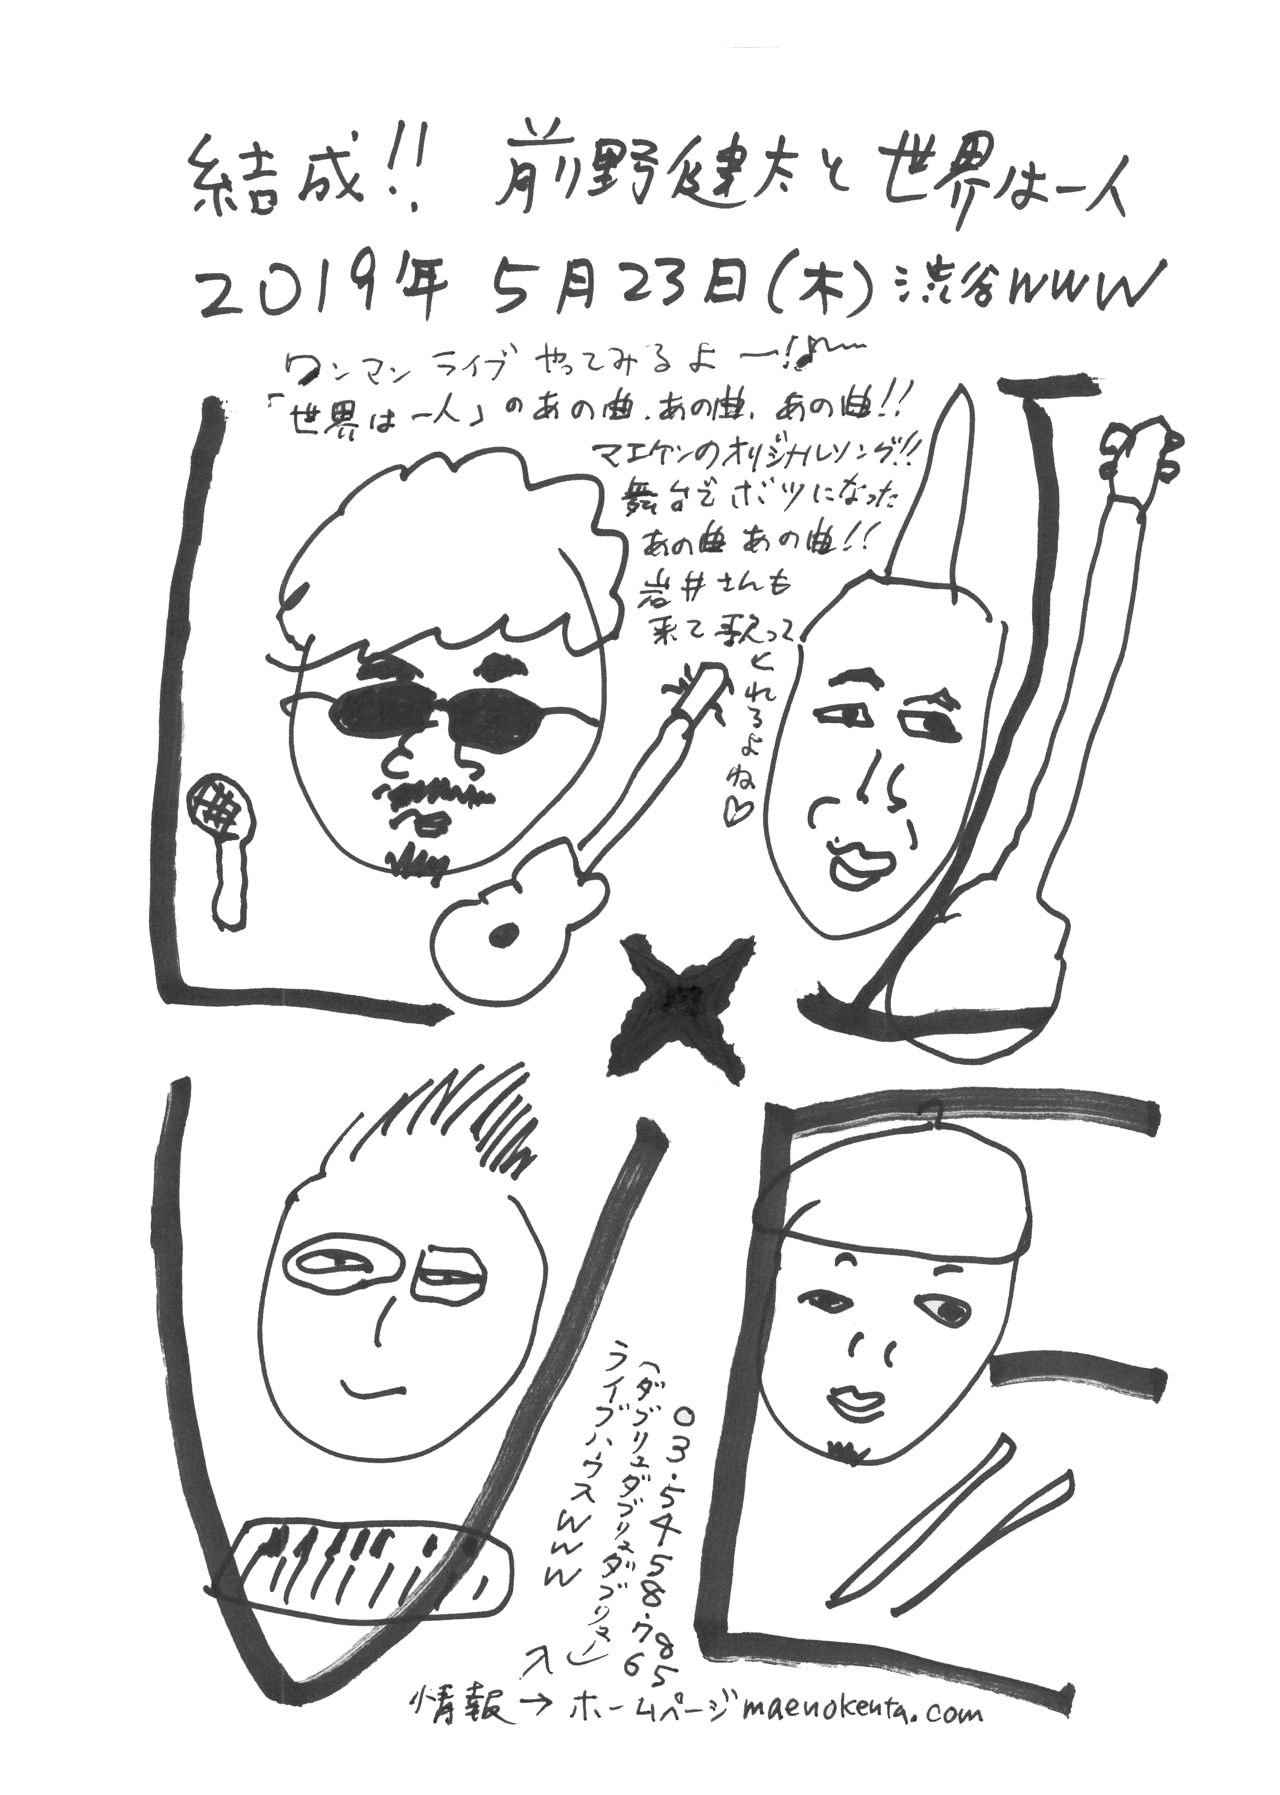 結成!! 前野健太と世界は一人
2019年 5月23日(木) 渋谷WWW
ワンマン ライブ やってみるよー!♪〜
「世界は一人」のあの曲、あの曲、あの曲!!
マエケンのオリジナルソング!!
舞台でボツになった
あの曲 あの曲!!
岩井さんも
来て歌って
くれるよね♡
LIVE
ライブハウスWWW
(ダブリュダブリュダブリュー)
03.5458.7685
情報→ホームページmaenokenta.com